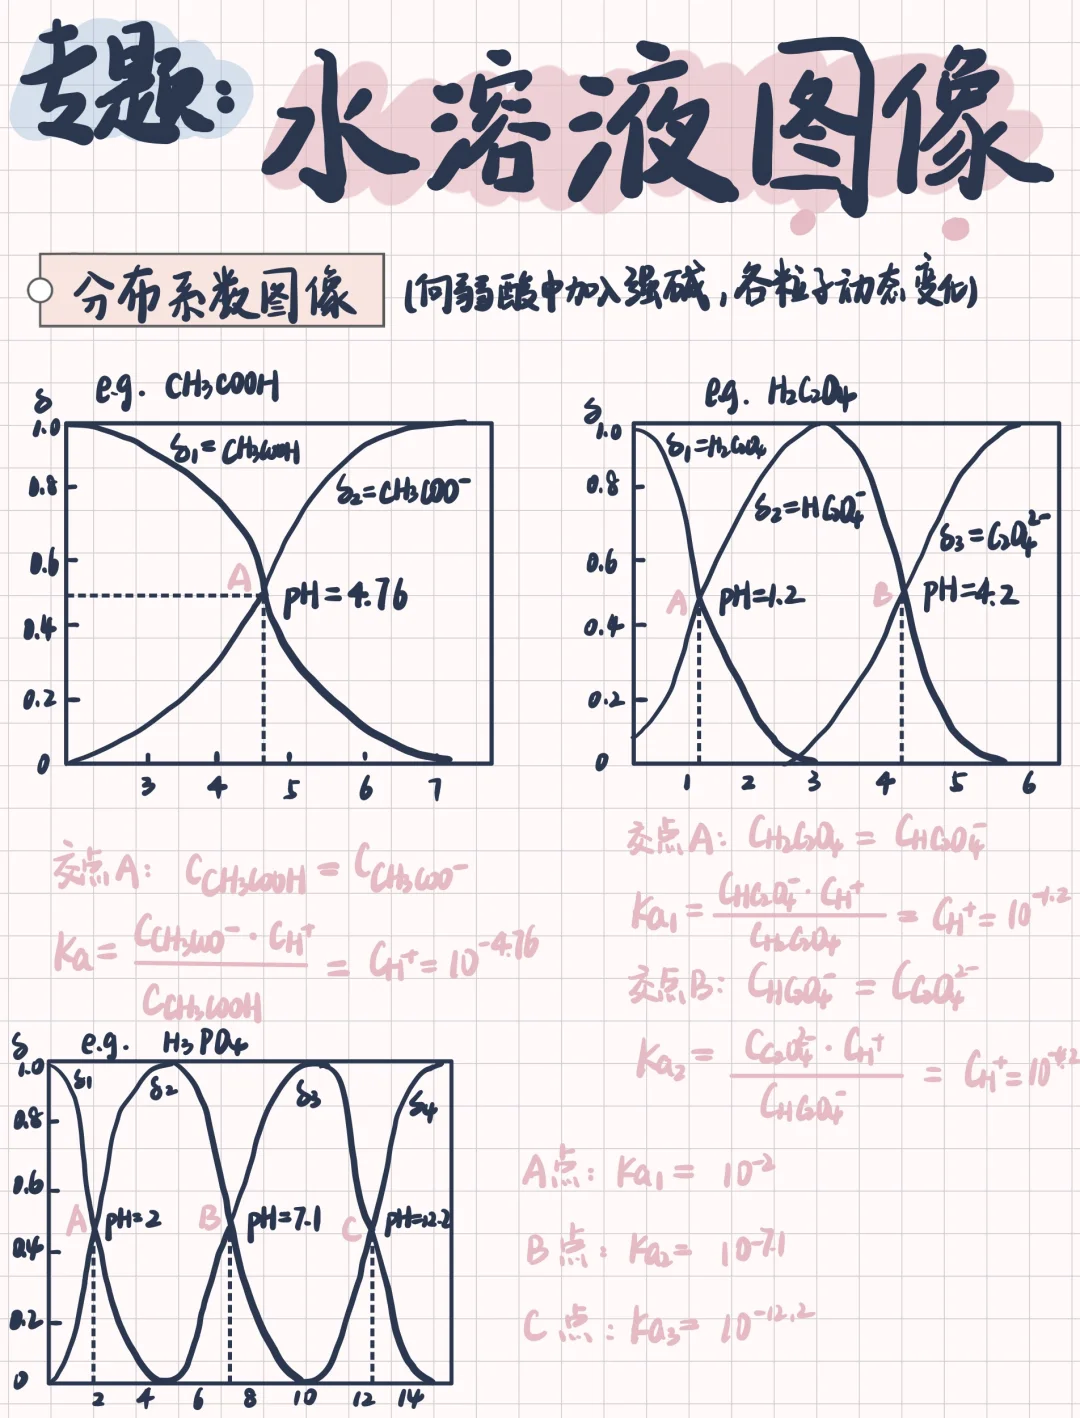 专题:
水溶液图像
分布系数图像 (向弱酸中加入强碱,各粒子动态变化)
e.g. CH₃COOH
δ
1.0
0.8
0.6
0.4
0.2
0
δ₁=CH₃COOH
δ₂=CH₃COO⁻
A
pH=4.76
3 4 5 6 7
e.g. H₂C₂O₄
δ
1.0
0.8
0.6
0.4
0.2
0
δ₁=H₂C₂O₄
δ₂=HC₂O₄⁻
δ₃=C₂O₄²⁻
A pH=1.2
B pH=4.2
1 2 3 4 5 6
交点A: C_CH₃COOH = C_CH₃COO⁻
Ka = C_CH₃COO⁻·C_H⁺ / C_CH₃COOH = C_H⁺ = 10⁻⁴·⁷⁶
交点A: C_H₂C₂O₄ = C_HC₂O₄⁻
Ka₁ = C_HC₂O₄⁻·C_H⁺ / C_H₂C₂O₄ = C_H⁺ = 10⁻¹·²
交点B: C_HC₂O₄⁻ = C_C₂O₄²⁻
Ka₂ = C_C₂O₄²⁻·C_H⁺ / C_HC₂O₄⁻ = C_H⁺ = 10⁻⁴·²
e.g. H₃PO₄
δ
1.0
0.8
0.6
0.4
0.2
0
δ₁ δ₂ δ₃ δ₄
A pH=2 B pH=7.1 C pH=12.2
2 4 6 8 10 12 14
A点: Ka₁= 10⁻²
B点: Ka₂= 10⁻⁷·¹
C点: Ka₃= 10⁻¹²·²